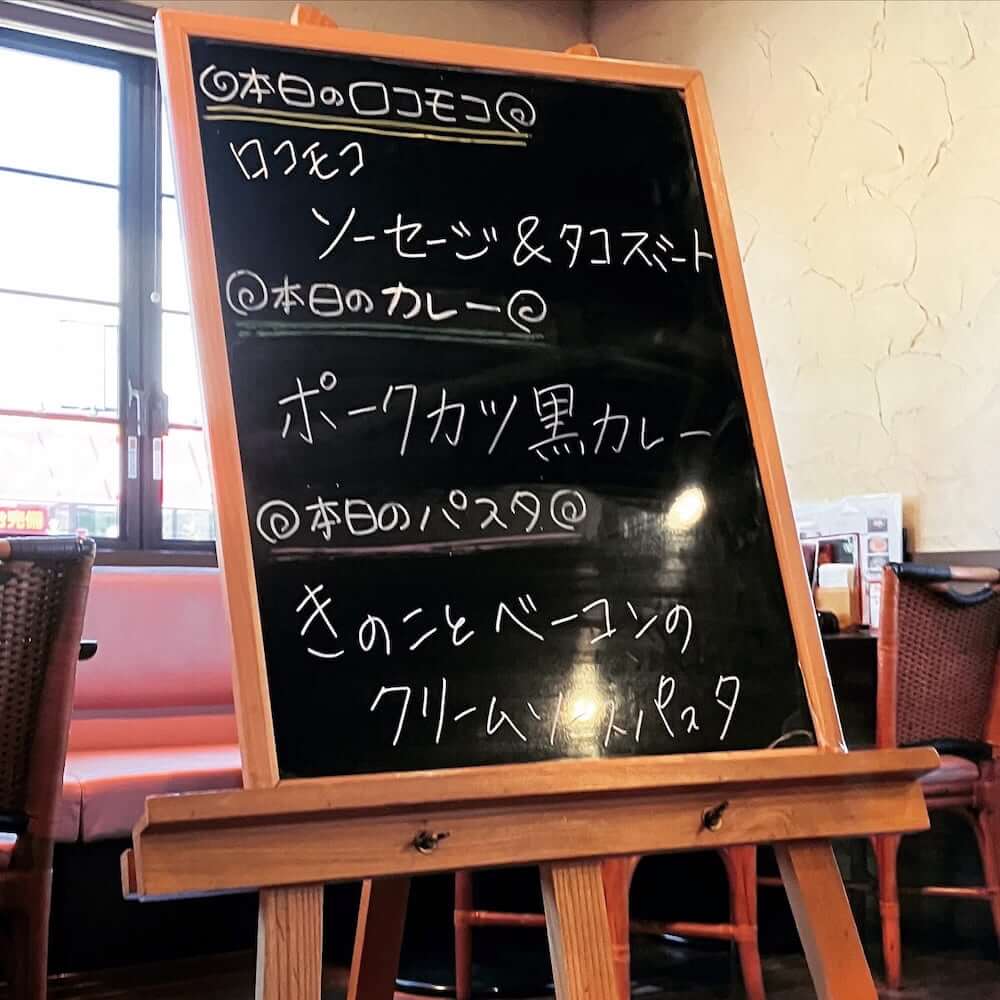 本日のロコモコ
ロコモコ
ソーセージ&タコスミート
本日のカレー
ポークカツ黒カレー
本日のパスタ
きのことベーコンの
クリームソースパスタ